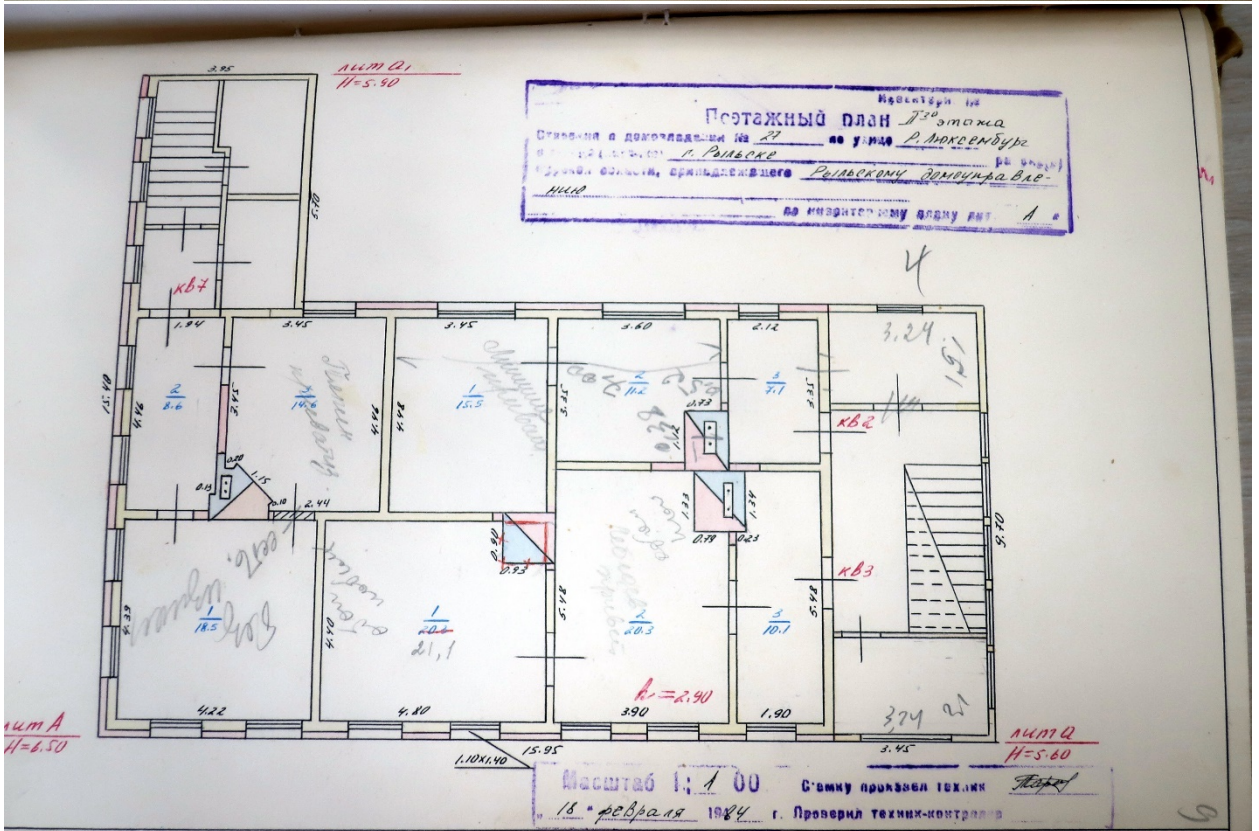 3.95
лит а₁
Н=5.90
Поэтажный план IIго этажа
Строения в домовладении № 27 по улице Р.Люксембург
г. Рыльске
области, принадлежащего Рыльскому домоуправле-
нию
по инвентарному плану лит. А
5.70
4
кв7
1.94
3.45
3.45
3.60
2.12
3.24
1.51
15.40
4.46
2
8.6
3.45
4.44
4.48
1
15.5
3.35
2
11.2
3
7.1
3.35
0.73
1.12
кв2
0.20
1.15
0.19
0.10
2.44
1.33
1.34
0.79
0.23
9.70
0.90
0.93
кв3
4.39
1
18.5
4.40
1
20.6
21,1
5.48
2
20.3
3
10.1
5.48
h=2.90
4.22
4.80
3.90
1.90
3,24
лит А
Н=6.50
15.95
3.45
лит а
Н=5.60
1.10х1.40
Масштаб 1:100 Съемку произвел техник
"18" февраля 1984 г. Проверил техник-контролер